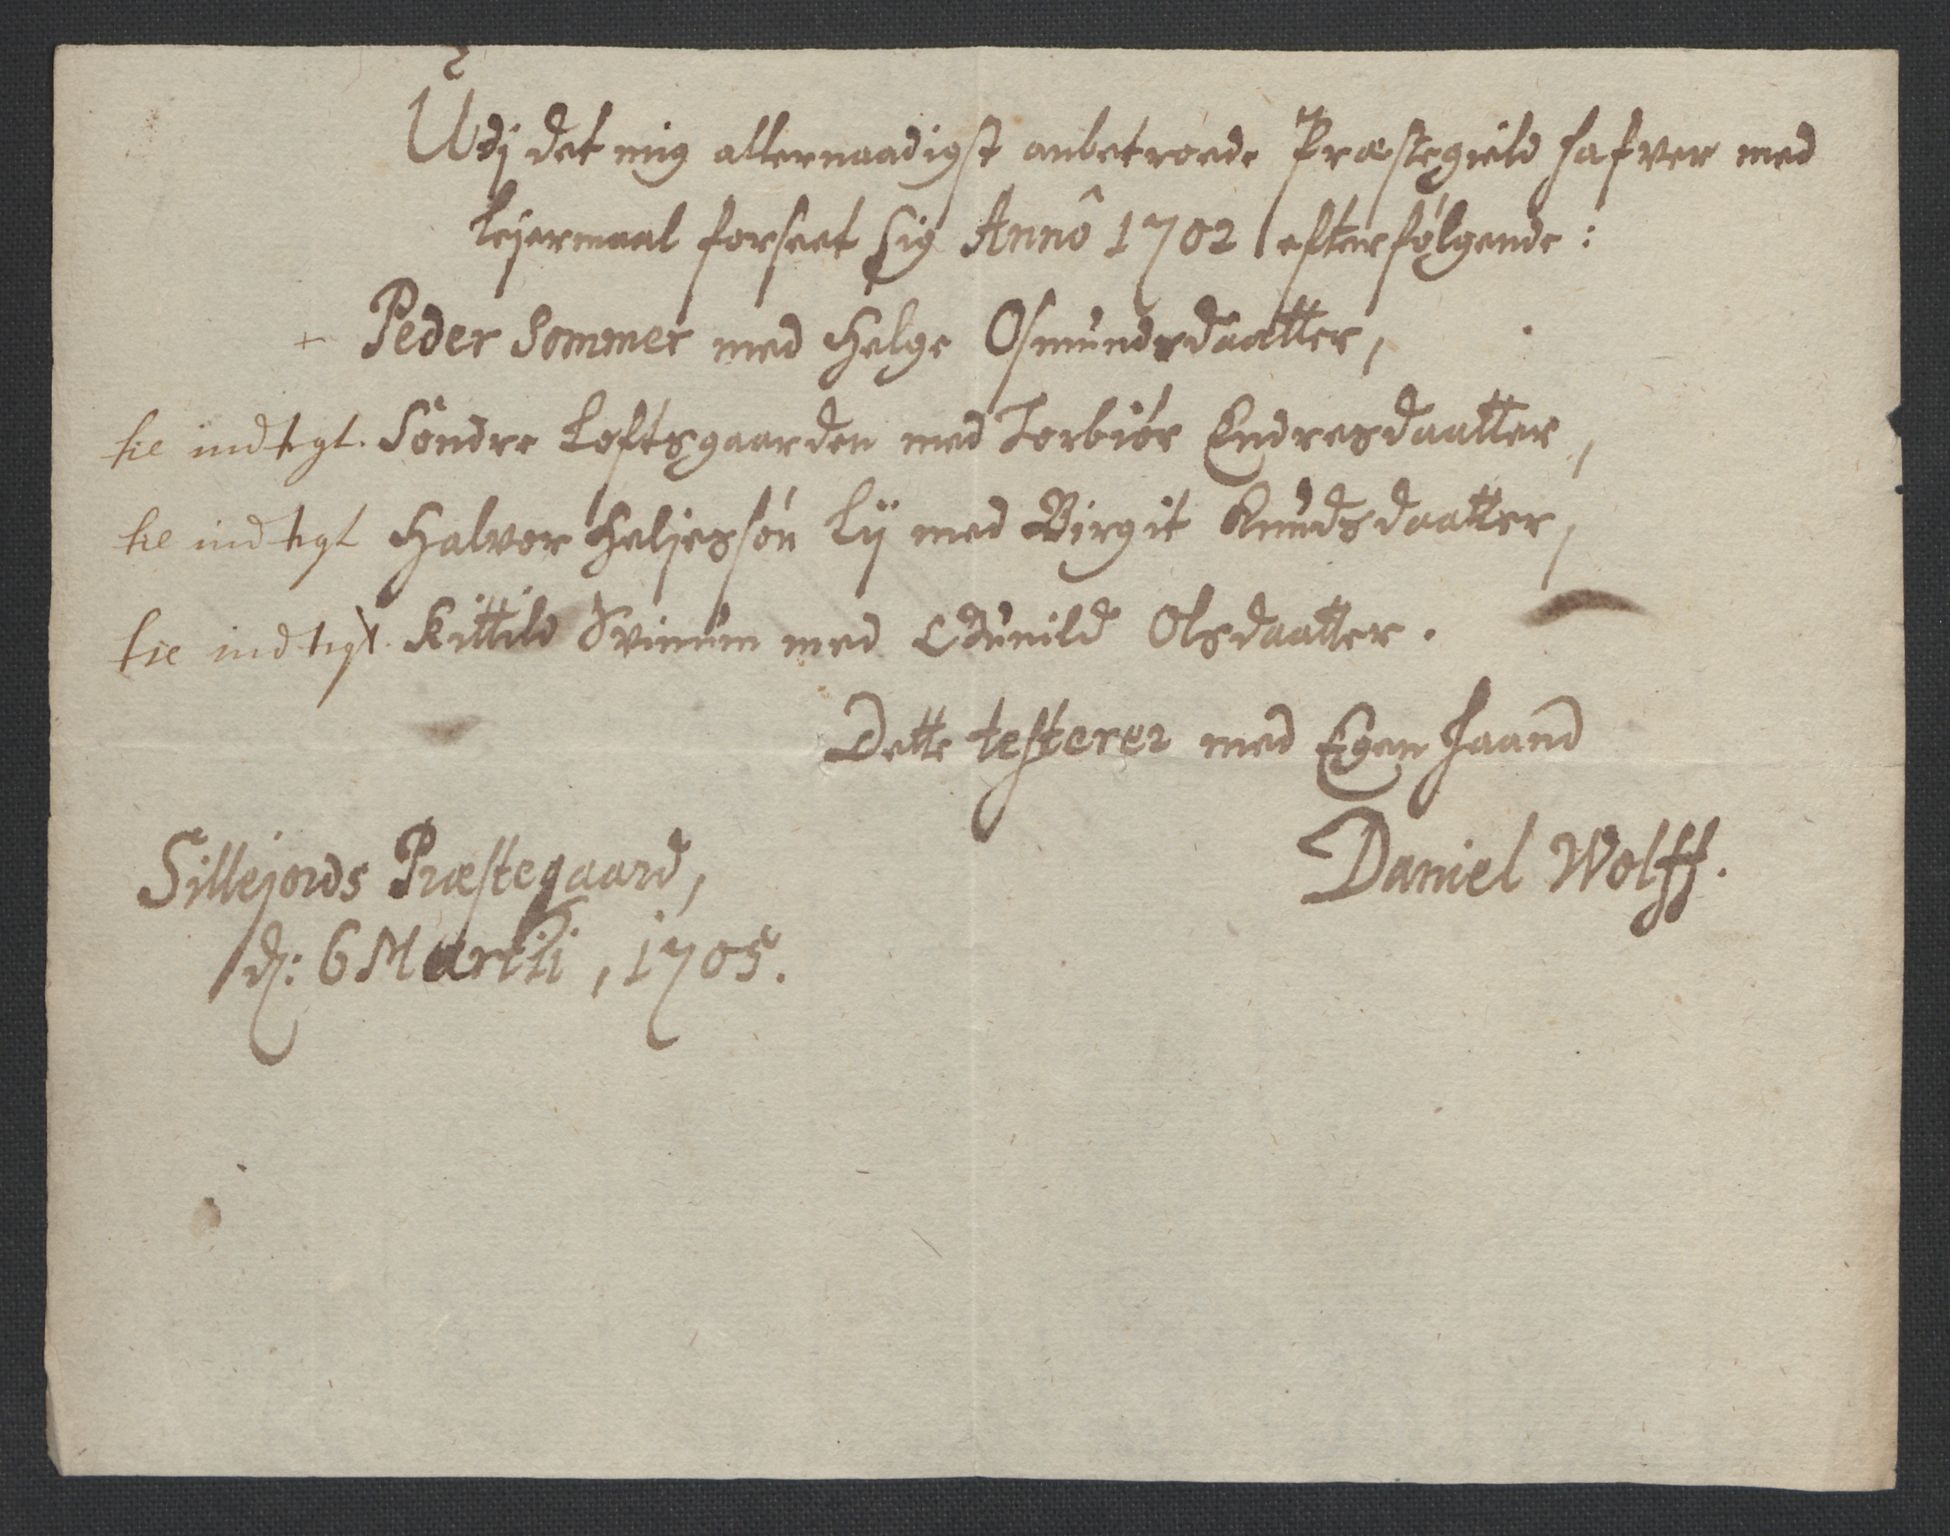 Udj det mig allernaadigst anbetroede Præstegield hafver med
Lejermaal forseet sig Annô 1702 efterfølgende:
+ Peder Sommer med Helge Osmundsdaatter,
Söndre Loftsgaarden med Torbiör Endresdaatter,
Halvor Heljessön Lij med Birgit Knudsdaatter,
Kittild Svinum med Gunild Olsdaatter.
Dette testerer med Egen haand
Daniel Wolff.
Sillejords Præstegaard,
d: 6 Martii, 1705.